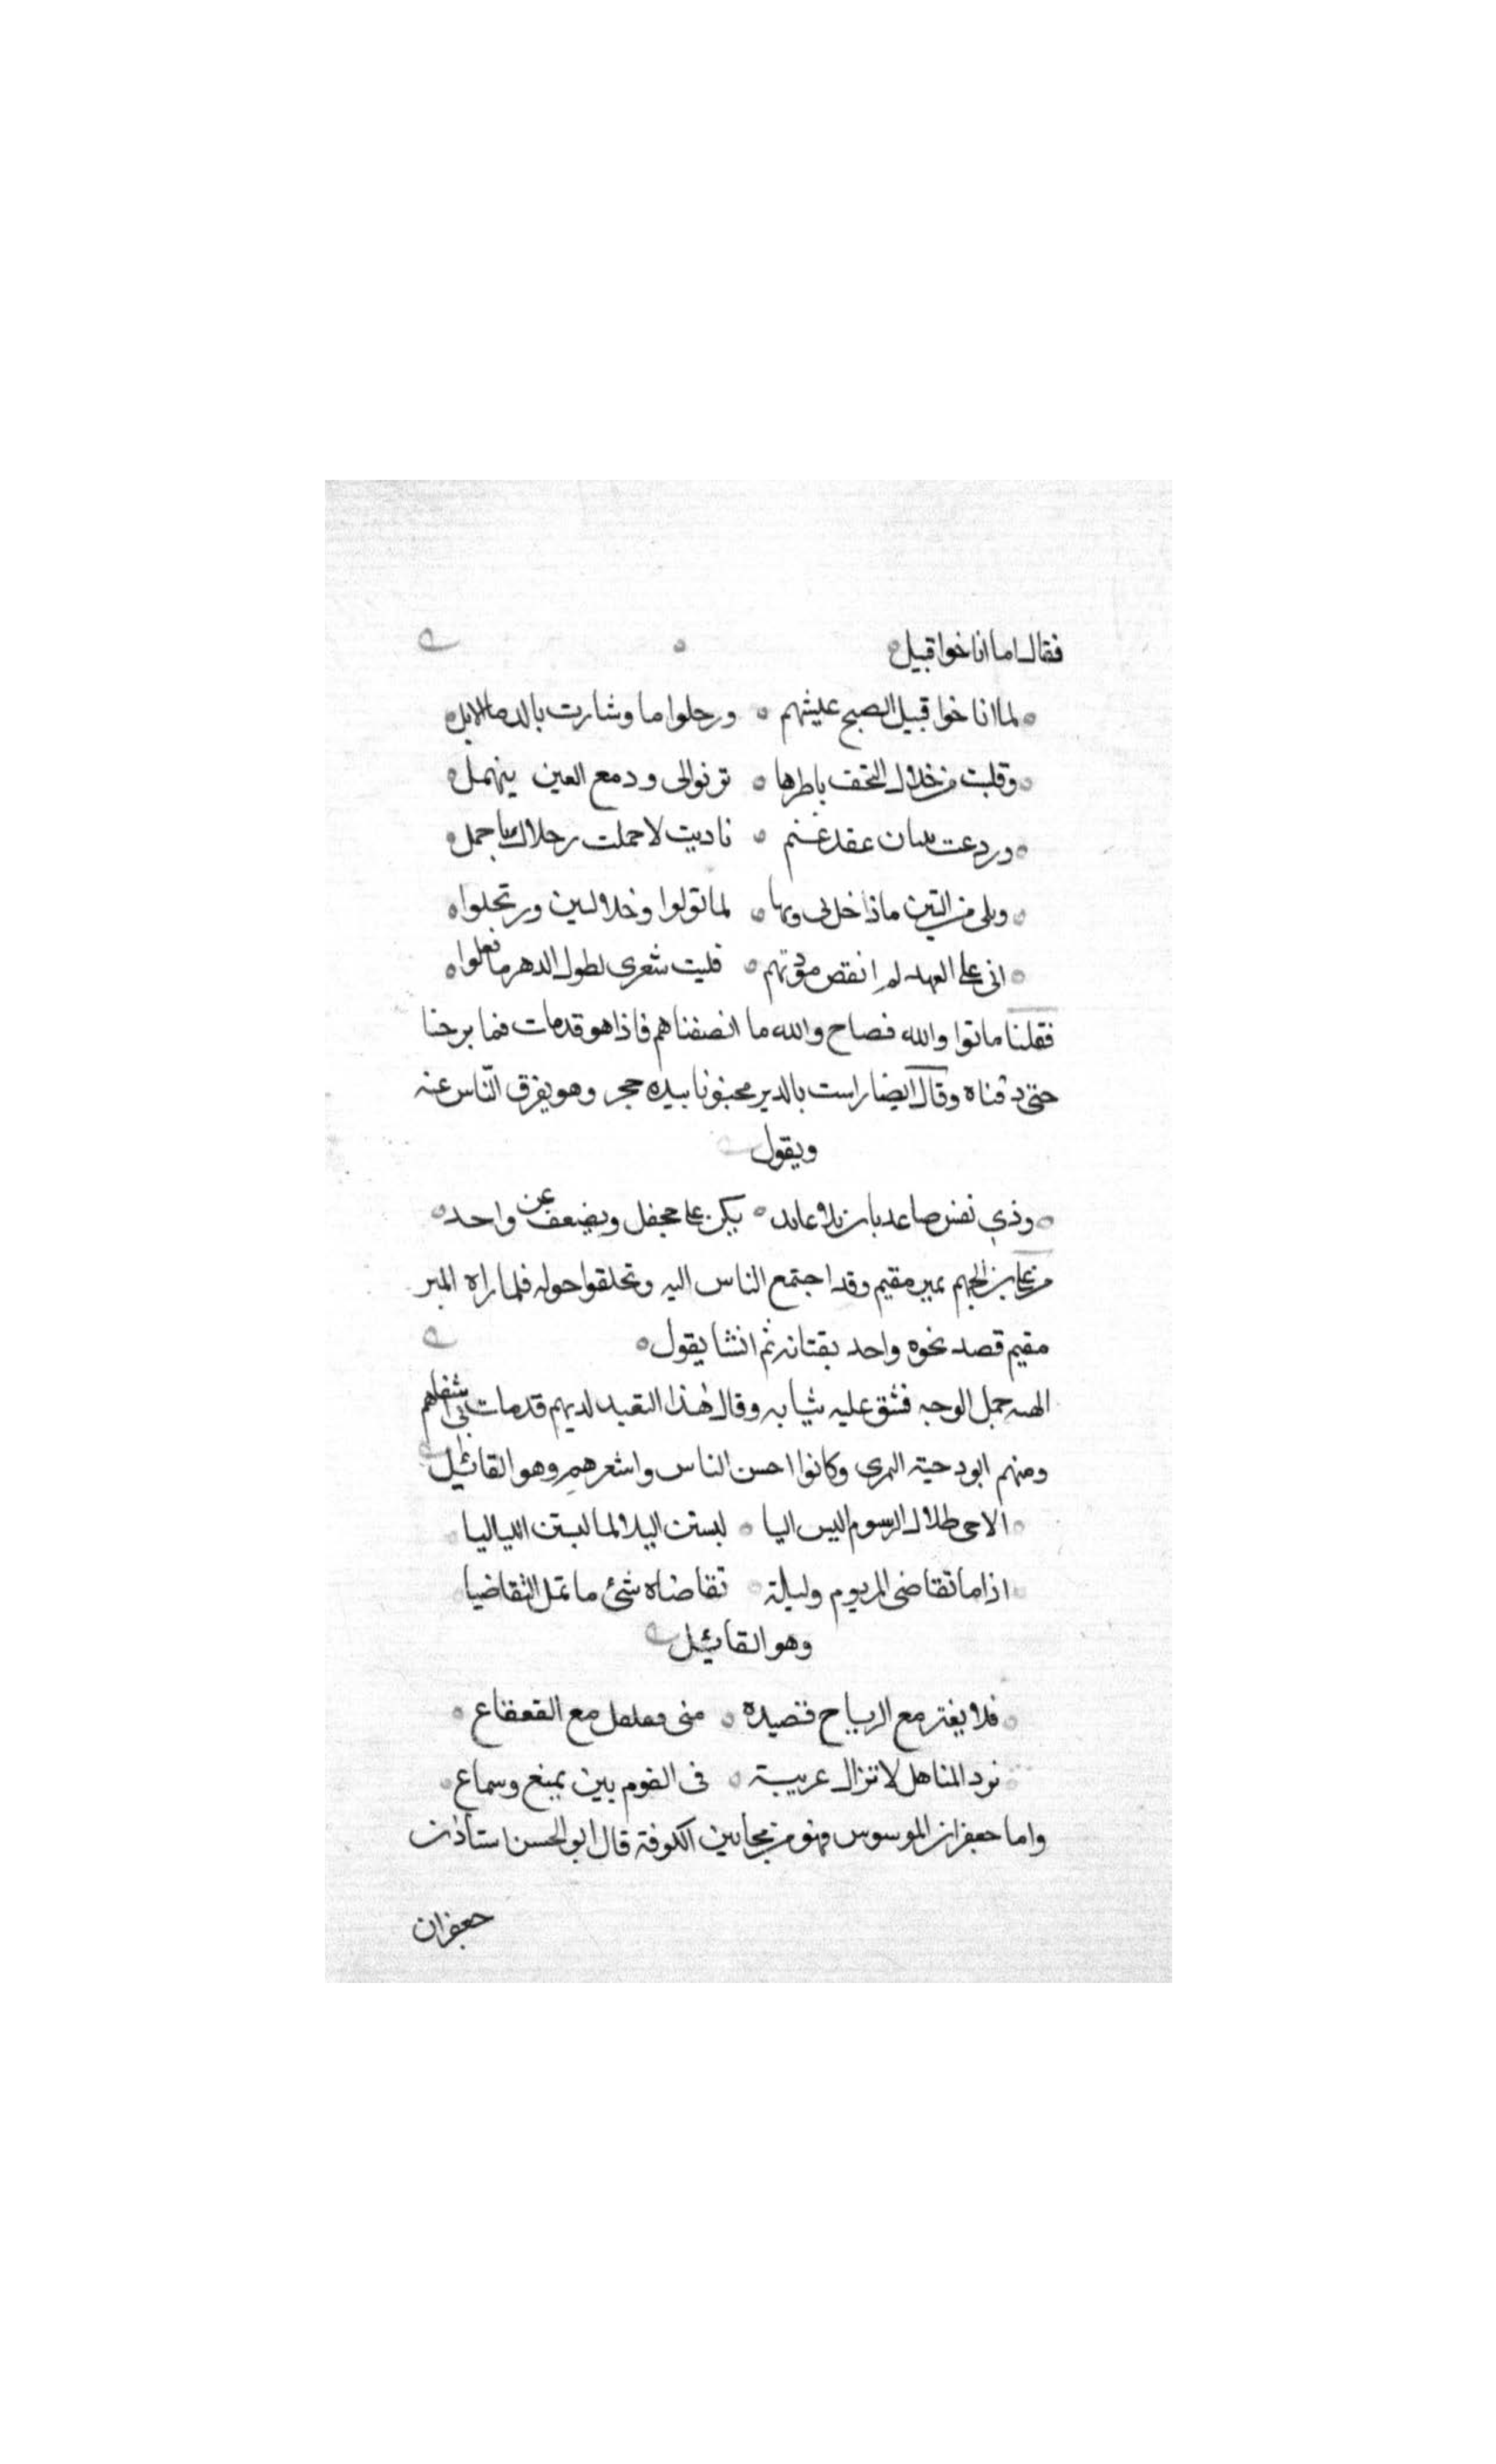 فقال اما اناخوا قبيل
لما اناخوا قبيل الصبح عيشهم ورحلوا ما وشارت بالدما الابل
وقلبت من خلال السجف باطرها ترنوالى ودمع العين ينهمل
وردعت عقد عنم ناديت لا حملت رجلاك يا جمل
ويلى من البين ماذا حل بى وبها لما تولوا وخلا لبين ورتحلوا
انى على العهد لم انقص مودتهم فليت شعرى لطول الدهر ما فعلوا
فقلنا ماتوا والله فصاح والله ما انصفناهم فاذا هو قدمات فما برحنا
حتى دفناه وقال ايضا راست بالدير مجنونا بيده حجر وهو يفرق النّاس عنه
ويقول
وذي نفس صاعد بلا عايد يكر على جحفل ويضعف عن واحد
مر على بن الجهم مقيم وقد اجتمع الناس اليه وتحلقوا حوله فلما راه المبر
مقيم قصد نحوه واحد بقتانه ثم انشا يقول
الوجه فشق عليه ثيابه وقال هذا لديهم قدمات
ومنهم ابو دحية المرى وكانوا احسن الناس واشعرهم وهو القائيل
الاحى طلال الرسوم البس اليا لبستن البلا لما لبستن اللياليا
اذا ما تقاضى المر يوم وليلة تقاضاه شئ ما تمل التقاضيا
وهو القائيل
فلا يغتر مع الرياح قصيده منى مع القعقاع
ترد المناهل لا تزال عريبة فى القوم بين بمنع وسماع
واما جعفران الموسوس فهو من مجانين الكوفة قال ابو الحسن استاذن
جعفران